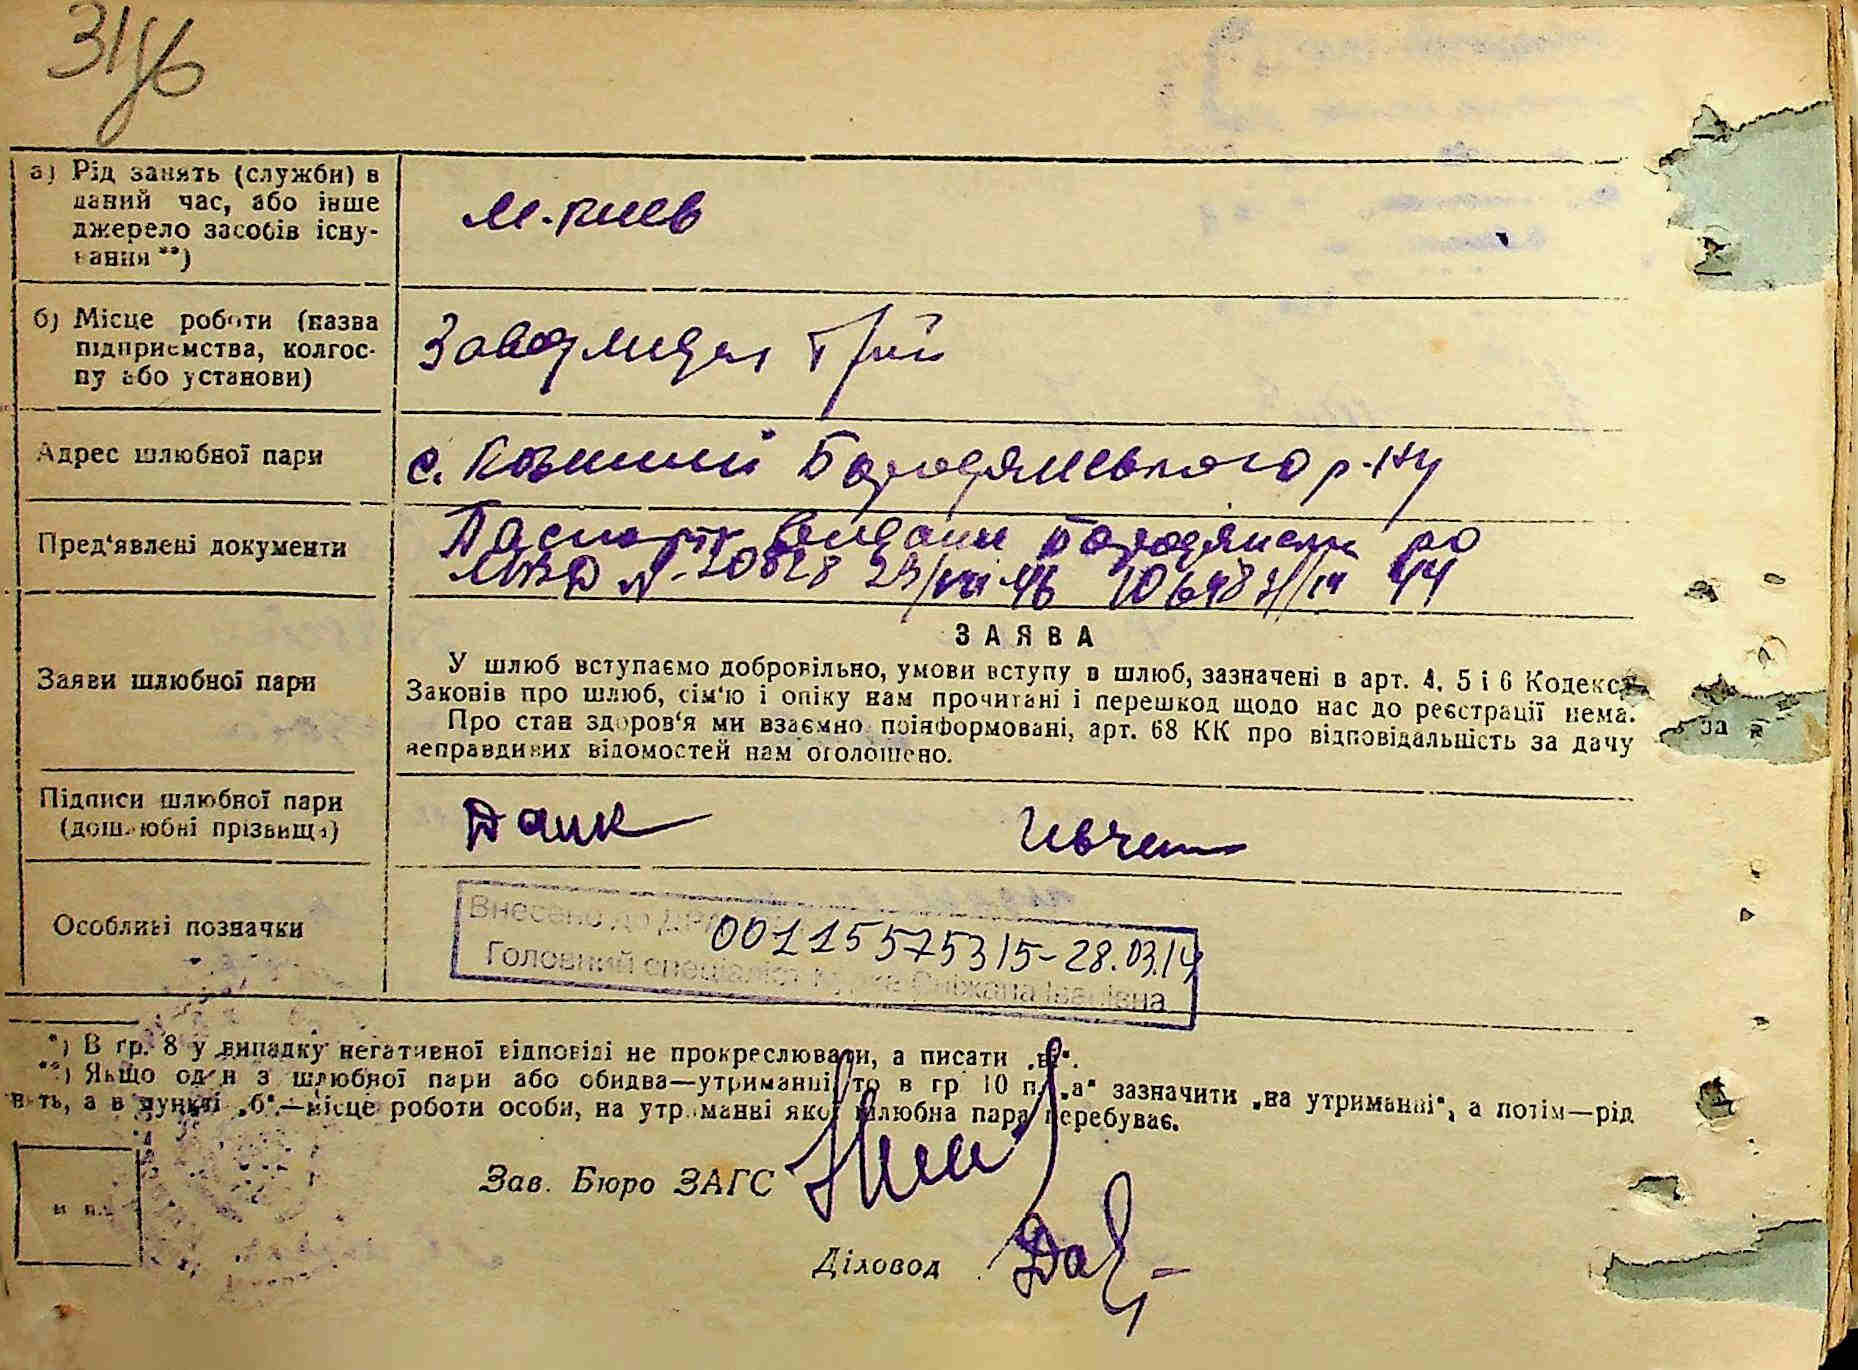 31/6
а) Рід занять (служби) в
даний час, або інше
джерело засобів існу-
вання **)
м. Киев
б) Місце роботи (назва
підприємства, колгос-
пу або установи)
Завод
Адрес шлюбної пари
с. Бородянського р-ну
Пред'явлені документи
Паспорти видани Бородянским РО
МВД № 20828 23/VII-46 10648 44
Заяви шлюбної пари
ЗАЯВА
У шлюб вступаємо добровільно, умови вступу в шлюб, зазначені в арт. 4, 5 і 6 Кодексу
Законів про шлюб, сім'ю і опіку нам прочитані і перешкод щодо нас до реєстрації нема.
Про стан здоров'я ми взаємно поінформовані, арт. 68 КК про відповідальність за дачу
неправдивих відомостей нам оголошено.
за
Підписи шлюбної пари
(дошлюбні прізвища)
Особливі позначки
Внесено до ДРАЦС
00115575315-28.03.14
Головний спеціаліст Сніжана Іванівна
*) В гр. 8 у випадку негативної відповіді не прокреслювати, а писати „ні“.
**) Якщо один з шлюбної пари або обидва—утриманні, то в гр 10 п. „а“ зазначити „на утриманні“, а потім—рід
нять, а в пункті „б“.—місце роботи особи, на утриманні якої шлюбна пара перебуває.
Зав. Бюро ЗАГС
м п.
Діловод